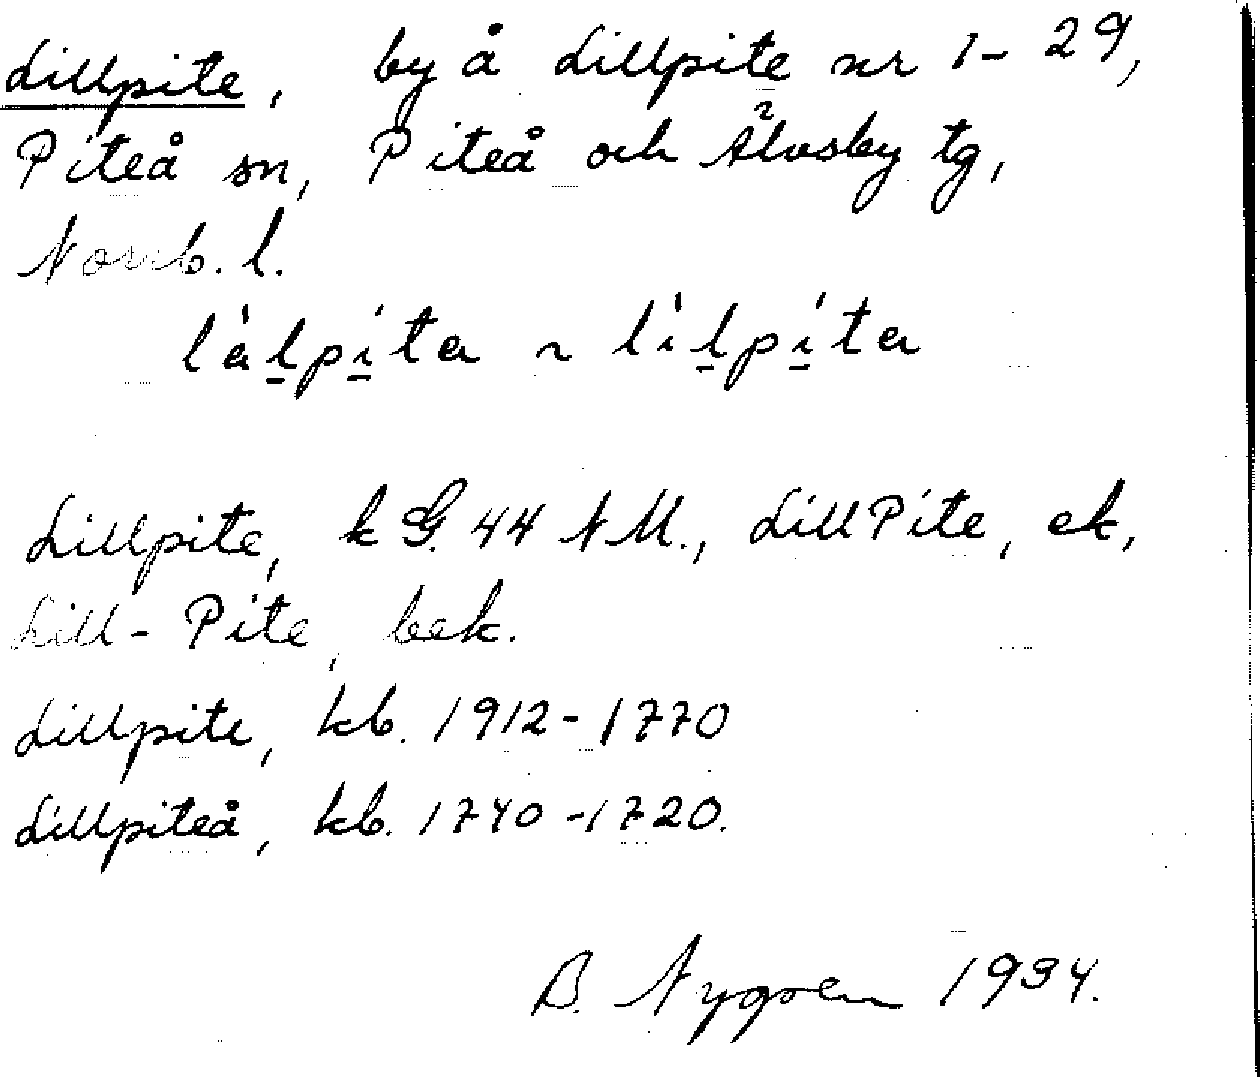 Lillpite, by å Lillpite nr 1-29,
Piteå sn, Piteå och Älvsby tg,
Norrb. l.
lálpíta ~ lìlpíta
Lillpite, k G. 44 N M., LillPite, ek,
Lill-Pite, bek.
Lillpite, kb. 1912-1770
Lillpiteå, kb. 1740-1720.
B. Nygren 1934.